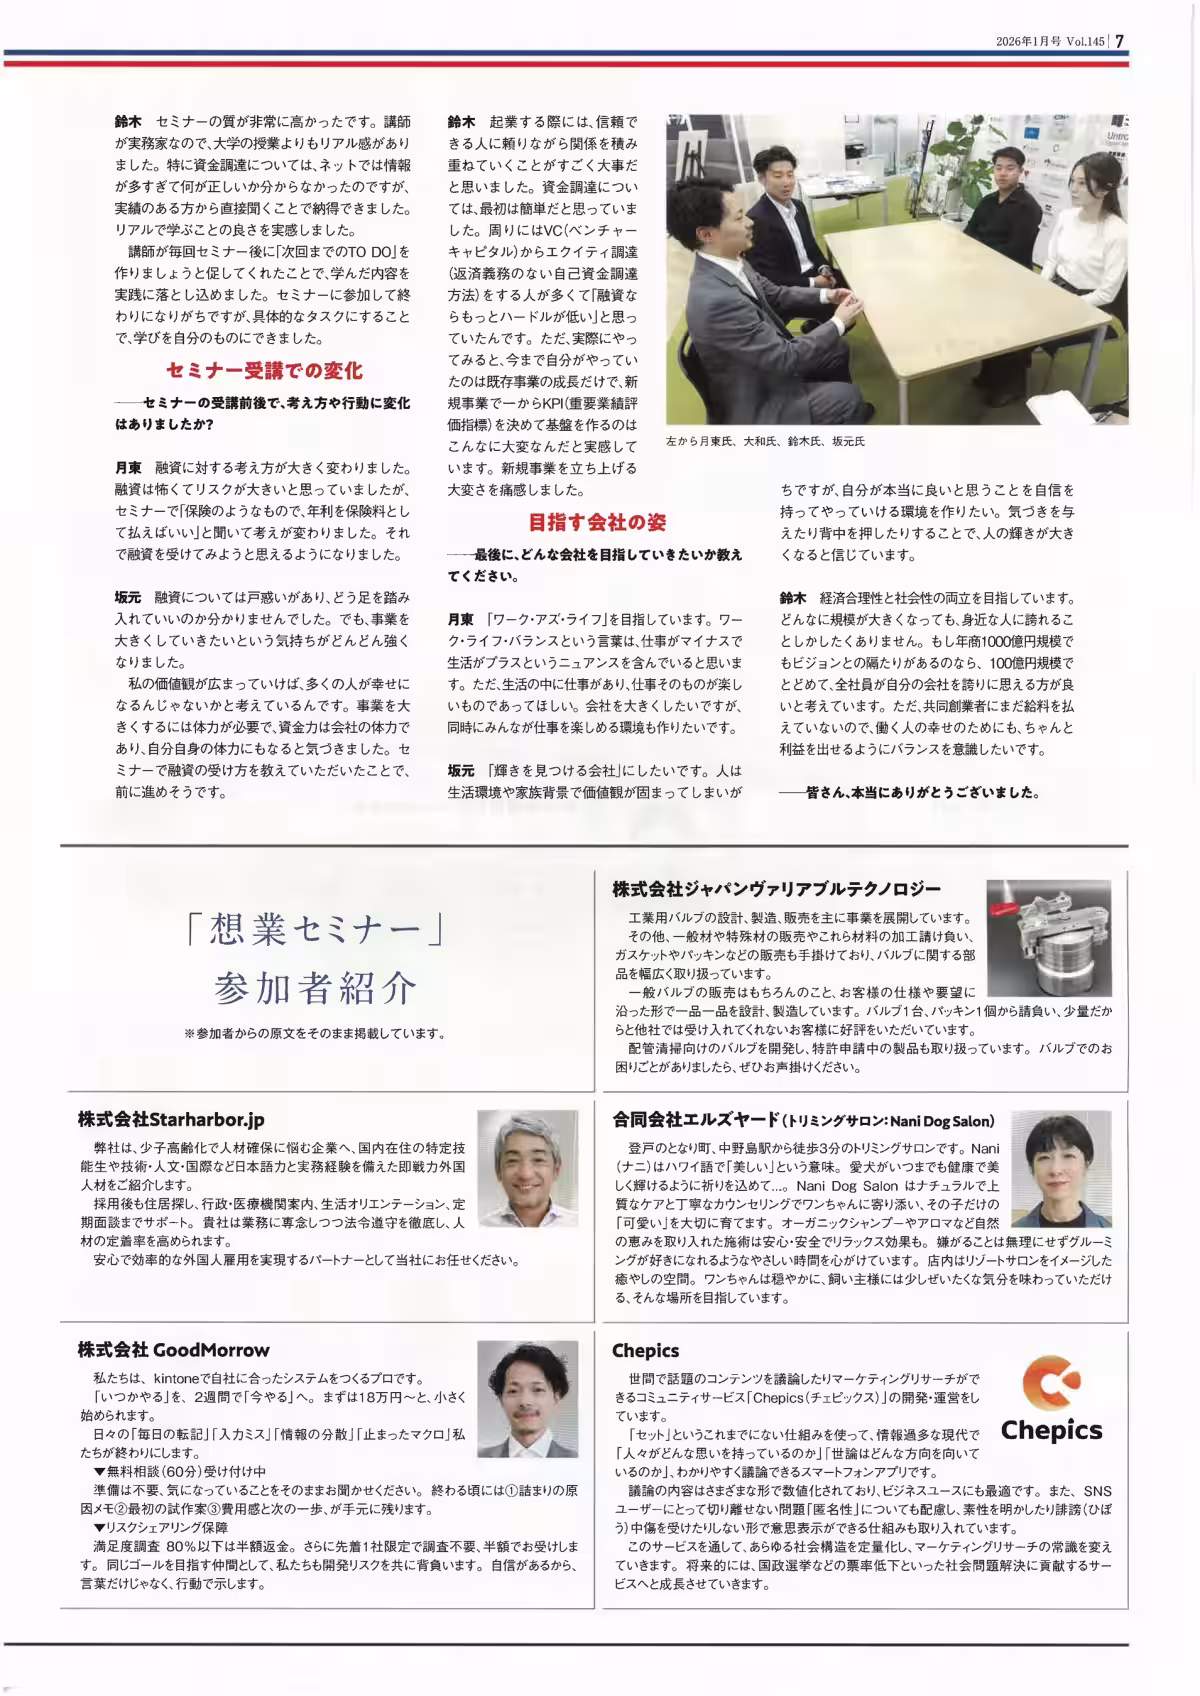 2026年1月号 Vol.145 7
鈴木　セミナーの質が非常に高かったです。講師
が実務家なので、大学の授業よりもリアル感があり
ました。特に資金調達については、ネットでは情報
が多すぎて何が正しいか分からなかったのですが、
実績のある方から直接聞くことで納得できました。
リアルで学ぶことの良さを実感しました。
　講師が毎回セミナー後に「次回までのTO DO」を
作りましょうと促してくれたことで、学んだ内容を
実践に落とし込めました。セミナーに参加して終
わりになりがちですが、具体的なタスクにすること
で、学びを自分のものにできました。
セミナー受講での変化
――セミナーの受講前後で、考え方や行動に変化
はありましたか?
月東　融資に対する考え方が大きく変わりました。
融資は怖くてリスクが大きいと思っていましたが、
セミナーで「保険のようなもので、年利を保険料とし
て払えばいい」と聞いて考えが変わりました。それ
で融資を受けてみようと思えるようになりました。
坂元　融資については戸惑いがあり、どう足を踏み
入れていいのか分かりませんでした。でも、事業を
大きくしていきたいという気持ちがどんどん強く
なりました。
　私の価値観が広まっていけば、多くの人が幸せに
なるんじゃないかと考えているんです。事業を大
きくするには体力が必要で、資金力は会社の体力で
あり、自分自身の体力にもなると気づきました。セ
ミナーで融資の受け方を教えていただいたことで、
前に進めそうです。
鈴木　起業する際には、信頼で
きる人に頼りながら関係を積み
重ねていくことがすごく大事だ
と思いました。資金調達につい
ては、最初は簡単だと思っていま
した。周りにはVC(ベンチャー
キャピタル)からエクイティ調達
(返済義務のない自己資金調達
方法)をする人が多くて「融資な
らもっとハードルが低い」と思っ
ていたんです。ただ、実際にやっ
てみると、今まで自分がやってい
たのは既存事業の成長だけで、新
規事業で一からKPI(重要業績評
価指標)を決めて基盤を作るのは
こんなに大変なんだと実感して
います。新規事業を立ち上げる
大変さを痛感しました。
目指す会社の姿
――最後に、どんな会社を目指していきたいか教え
てください。
月東　「ワーク・アズ・ライフ」を目指しています。ワー
ク・ライフ・バランスという言葉は、仕事がマイナスで
生活がプラスというニュアンスを含んでいると思いま
す。ただ、生活の中に仕事があり、仕事そのものが楽し
いものであってほしい。会社を大きくしたいですが、
同時にみんなが仕事を楽しめる環境も作りたいです。
坂元　「輝きを見つける会社」にしたいです。人は
生活環境や家族背景で価値観が固まってしまいが
左から月東氏、大和氏、鈴木氏、坂元氏
ちですが、自分が本当に良いと思うことを自信を
持ってやっていける環境を作りたい。気づきを与
えたり背中を押したりすることで、人の輝きが大き
くなると信じています。
鈴木　経済合理性と社会性の両立を目指しています。
どんなに規模が大きくなっても、身近な人に誇れるこ
としかしたくありません。もし年商1000億円規模で
もビジョンとの隔たりがあるのなら、100億円規模で
とどめて、全社員が自分の会社を誇りに思える方が良
いと考えています。ただ、共同創業者にまだ給料を払
えていないので、働く人の幸せのためにも、ちゃんと
利益を出せるようにバランスを意識したいです。
――皆さん、本当にありがとうございました。
「想業セミナー」
参加者紹介
※参加者からの原文をそのまま掲載しています。
株式会社ジャパンヴァリアブルテクノロジー
　工業用バルブの設計、製造、販売を主に事業を展開しています。
　その他、一般材や特殊材の販売やこれら材料の加工請け負い、
ガスケットやパッキンなどの販売も手掛けており、バルブに関する部
品を幅広く取り扱っています。
　一般バルブの販売はもちろんのこと、お客様の仕様や要望に
沿った形で一品一品を設計、製造しています。バルブ1台、パッキン1個から請負い、少量だか
らと他社では受け入れてくれないお客様に好評をいただいています。
　配管清掃向けのバルブを開発し、特許申請中の製品も取り扱っています。バルブでのお
困りごとがありましたら、ぜひお声掛けください。
株式会社Starharbor.jp
　弊社は、少子高齢化で人材確保に悩む企業へ、国内在住の特定技
能生や技術・人文・国際など日本語力と実務経験を備えた即戦力外国
人材をご紹介します。
　採用後も住居探し、行政・医療機関案内、生活オリエンテーション、定
期面談までサポート。貴社は業務に専念しつつ法令遵守を徹底し、人
材の定着率を高められます。
　安心で効率的な外国人雇用を実現するパートナーとして当社にお任せください。
合同会社エルズヤード(トリミングサロン：Nani Dog Salon)
　登戸のとなり町、中野島駅から徒歩3分のトリミングサロンです。Nani
(ナニ)はハワイ語で「美しい」という意味。愛犬がいつまでも健康で美
しく輝けるように祈りを込めて…。Nani Dog Salon はナチュラルで上
質なケアと丁寧なカウンセリングでワンちゃんに寄り添い、その子だけの
「可愛い」を大切に育てます。オーガニックシャンプーやアロマなど自然
の恵みを取り入れた施術は安心・安全でリラックス効果も。嫌がることは無理にせずグルーミ
ングが好きになれるようなやさしい時間を心がけています。店内はリゾートサロンをイメージした
癒やしの空間。ワンちゃんは穏やかに、飼い主様には少しぜいたくな気分を味わっていただけ
る、そんな場所を目指しています。
株式会社 GoodMorrow
　私たちは、kintoneで自社に合ったシステムをつくるプロです。
　「いつかやる」を、2週間で「今やる」へ。まずは18万円〜と、小さく
始められます。
　日々の「毎日の転記」「入力ミス」「情報の分散」「止まったマクロ」私
たちが終わりにします。
　▼無料相談(60分)受け付け中
　準備は不要、気になっていることをそのままお聞かせください。終わる頃には①詰まりの原
因メモ②最初の試作案③費用感と次の一歩、が手元に残ります。
　▼リスクシェアリング保障
　満足度調査 80%以下は半額返金。さらに先着1社限定で調査不要、半額でお受けしま
す。同じゴールを目指す仲間として、私たちも開発リスクを共に背負います。自信があるから、
言葉だけじゃなく、行動で示します。
Chepics
　世間で話題のコンテンツを議論したりマーケティングリサーチがで
きるコミュニティサービス「Chepics(チェピックス)」の開発・運営をし
ています。
　「セット」というこれまでにない仕組みを使って、情報過多な現代で
「人々がどんな思いを持っているのか」「世論はどんな方向を向いて
いるのか」、わかりやすく議論できるスマートフォンアプリです。
　議論の内容はさまざまな形で数値化されており、ビジネスユースにも最適です。また、SNS
ユーザーにとって切り離せない問題「匿名性」についても配慮し、素性を明かしたり誹謗(ひぼ
う)中傷を受けたりしない形で意思表示ができる仕組みも取り入れています。
　このサービスを通して、あらゆる社会構造を定量化し、マーケティングリサーチの常識を変え
ていきます。将来的には、国政選挙などの票率低下といった社会問題解決に貢献するサー
ビスへと成長させていきます。
Chepics